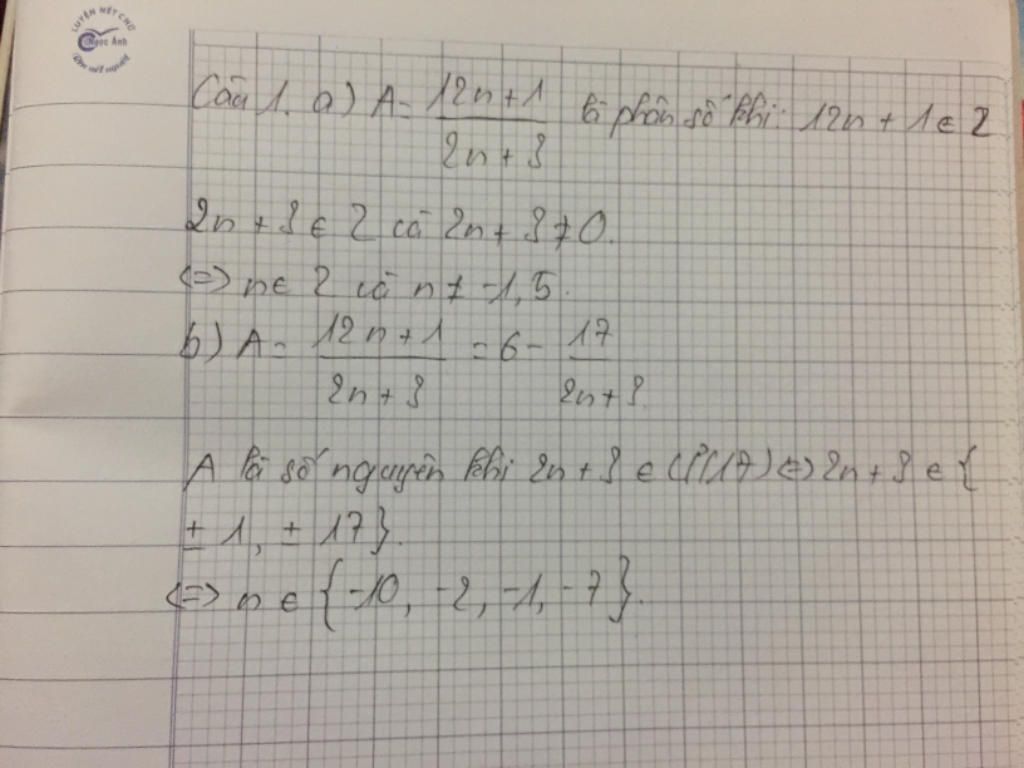 LUYỆN NÉT CHỮ
Ngọc Ánh
Rèn nết người
Câu 1. a) A = \frac{12n + 1}{2n + 3} là phân số khi: 12n + 1 ∈ Z
2n + 3 ∈ Z và 2n + 3 ≠ 0.
<=> n ∈ Z và n ≠ -1,5.
b) A = \frac{12n + 1}{2n + 3} = 6 - \frac{17}{2n + 3}.
A là số nguyên khi 2n + 3 ∈ Ư(17) <=> 2n + 3 ∈ {
± 1, ± 17}.
<=> n ∈ {-10, -2, -1, -7}.